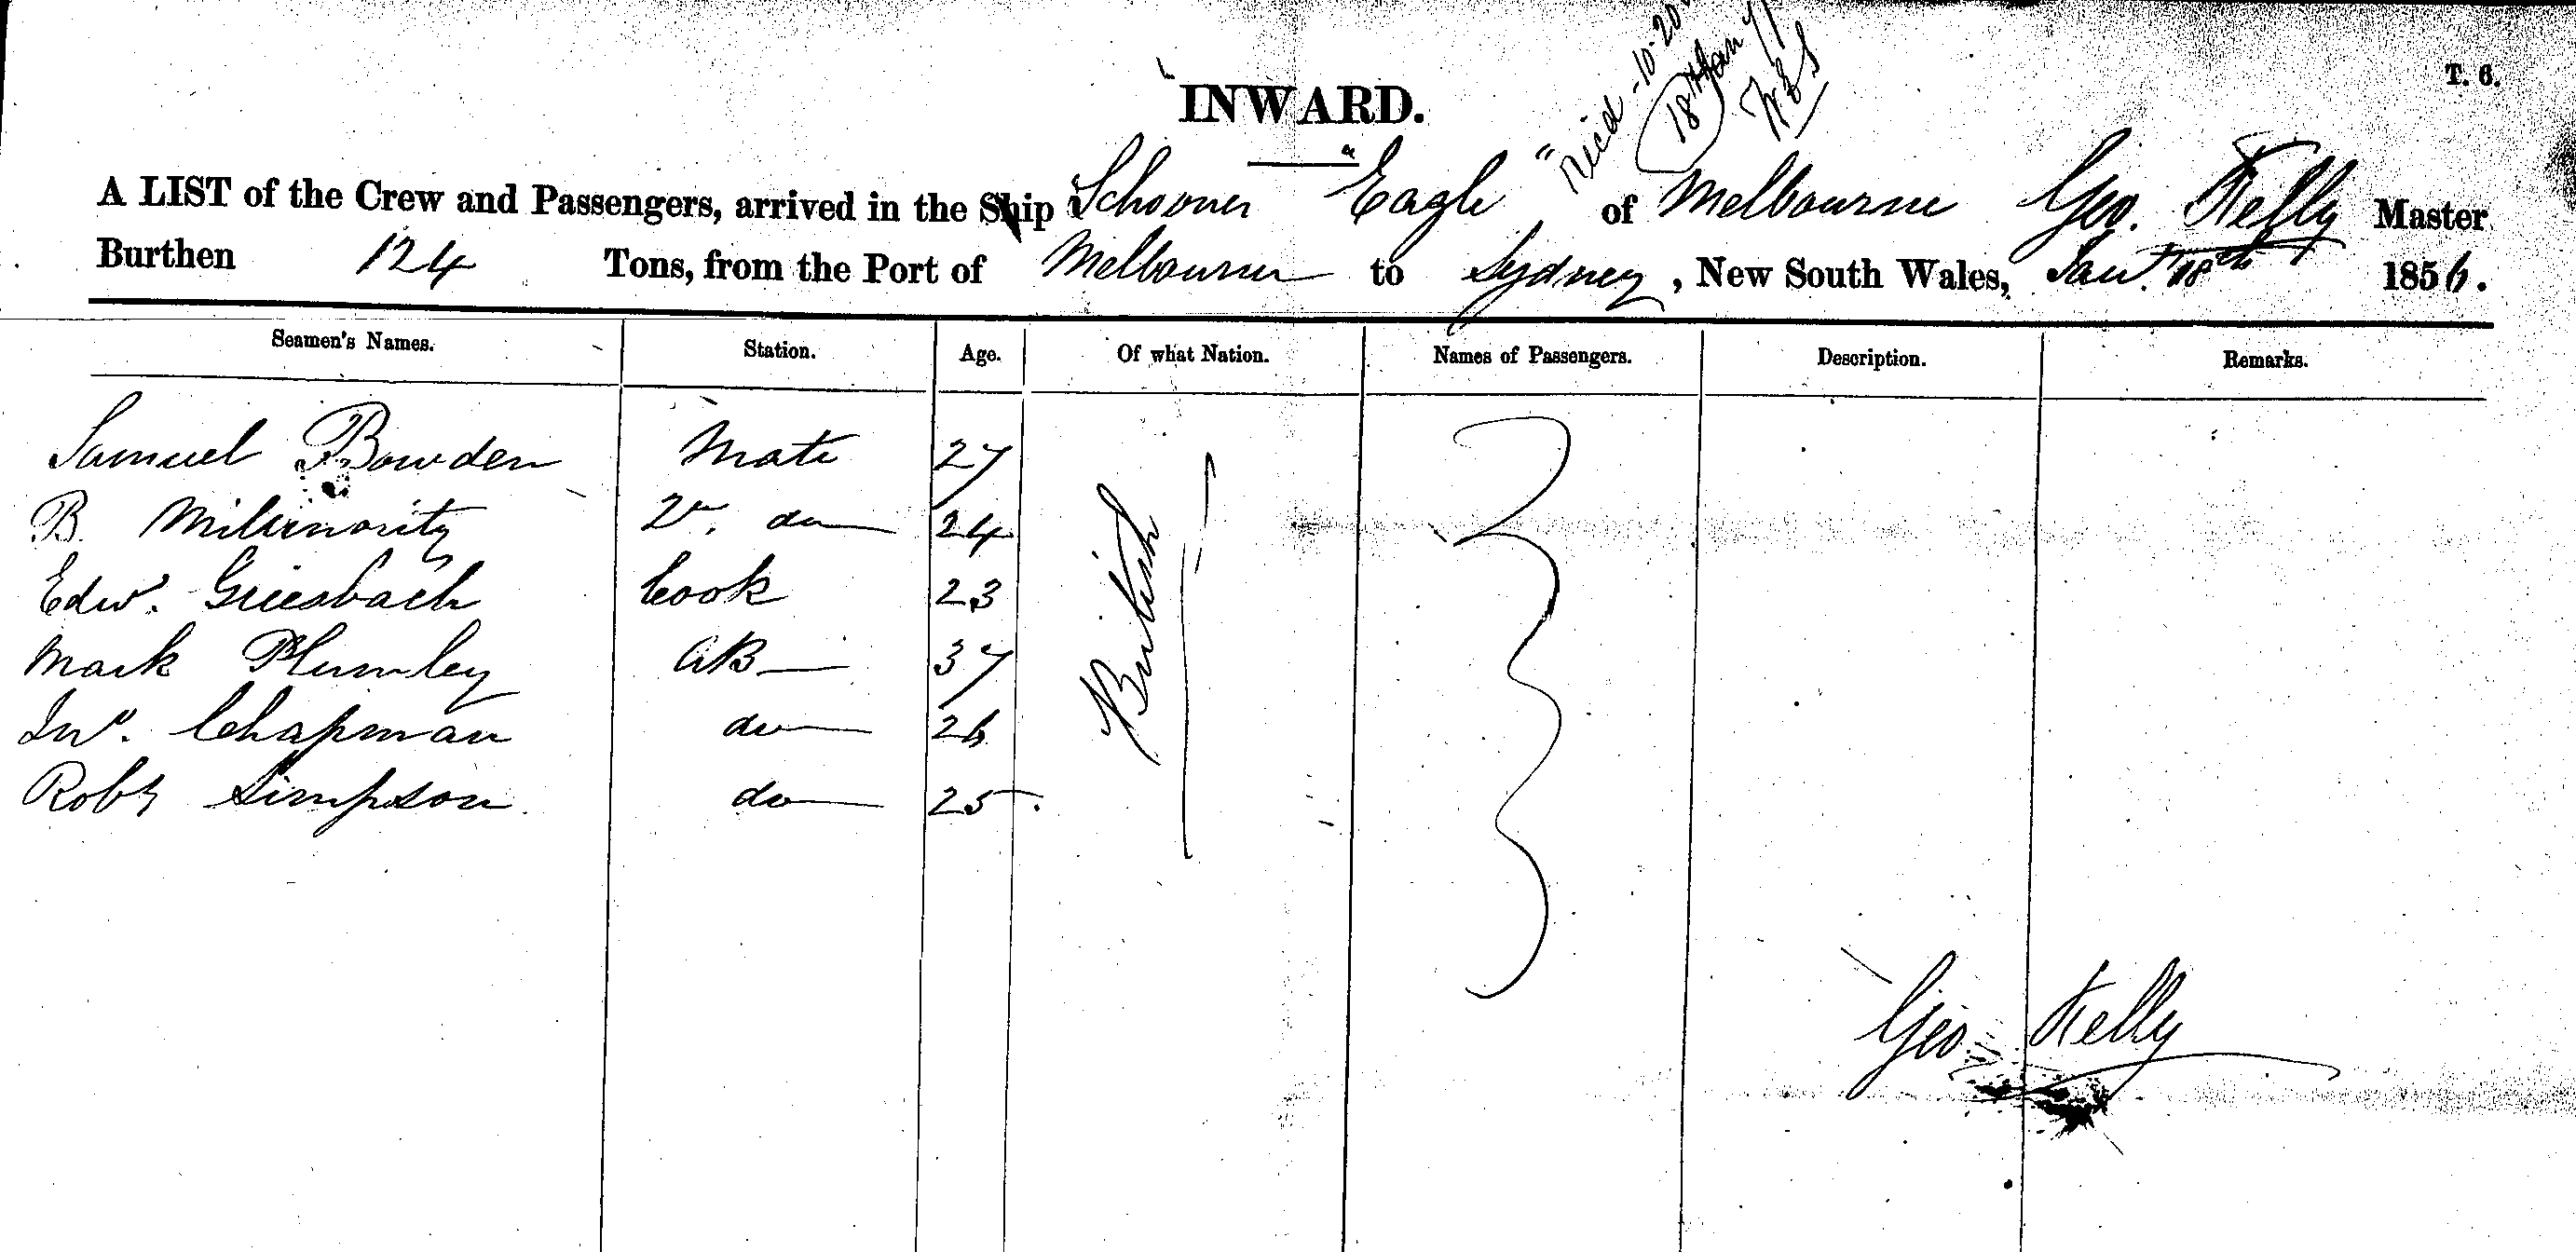 T. 6.
INWARD.
Recd 10.20
18 Jany
A LIST of the Crew and Passengers, arrived in the Ship Schooner "Eagle" of Melbourne Geo. Kelly Master
Burthen 124 Tons, from the Port of Melbourne to Sydney, New South Wales, Jany. 18th 1856.
Seamen's Names. Station. Age. Of what Nation. Names of Passengers. Description. Remarks.
Samuel Bowden Mate 27
B. 2nd. do 24
Edw. Griesbach Cook 23
Mark Plumley AB 37
Jno. Chapman do 26
Robt Simpson do 25.
British
Geo Kelly